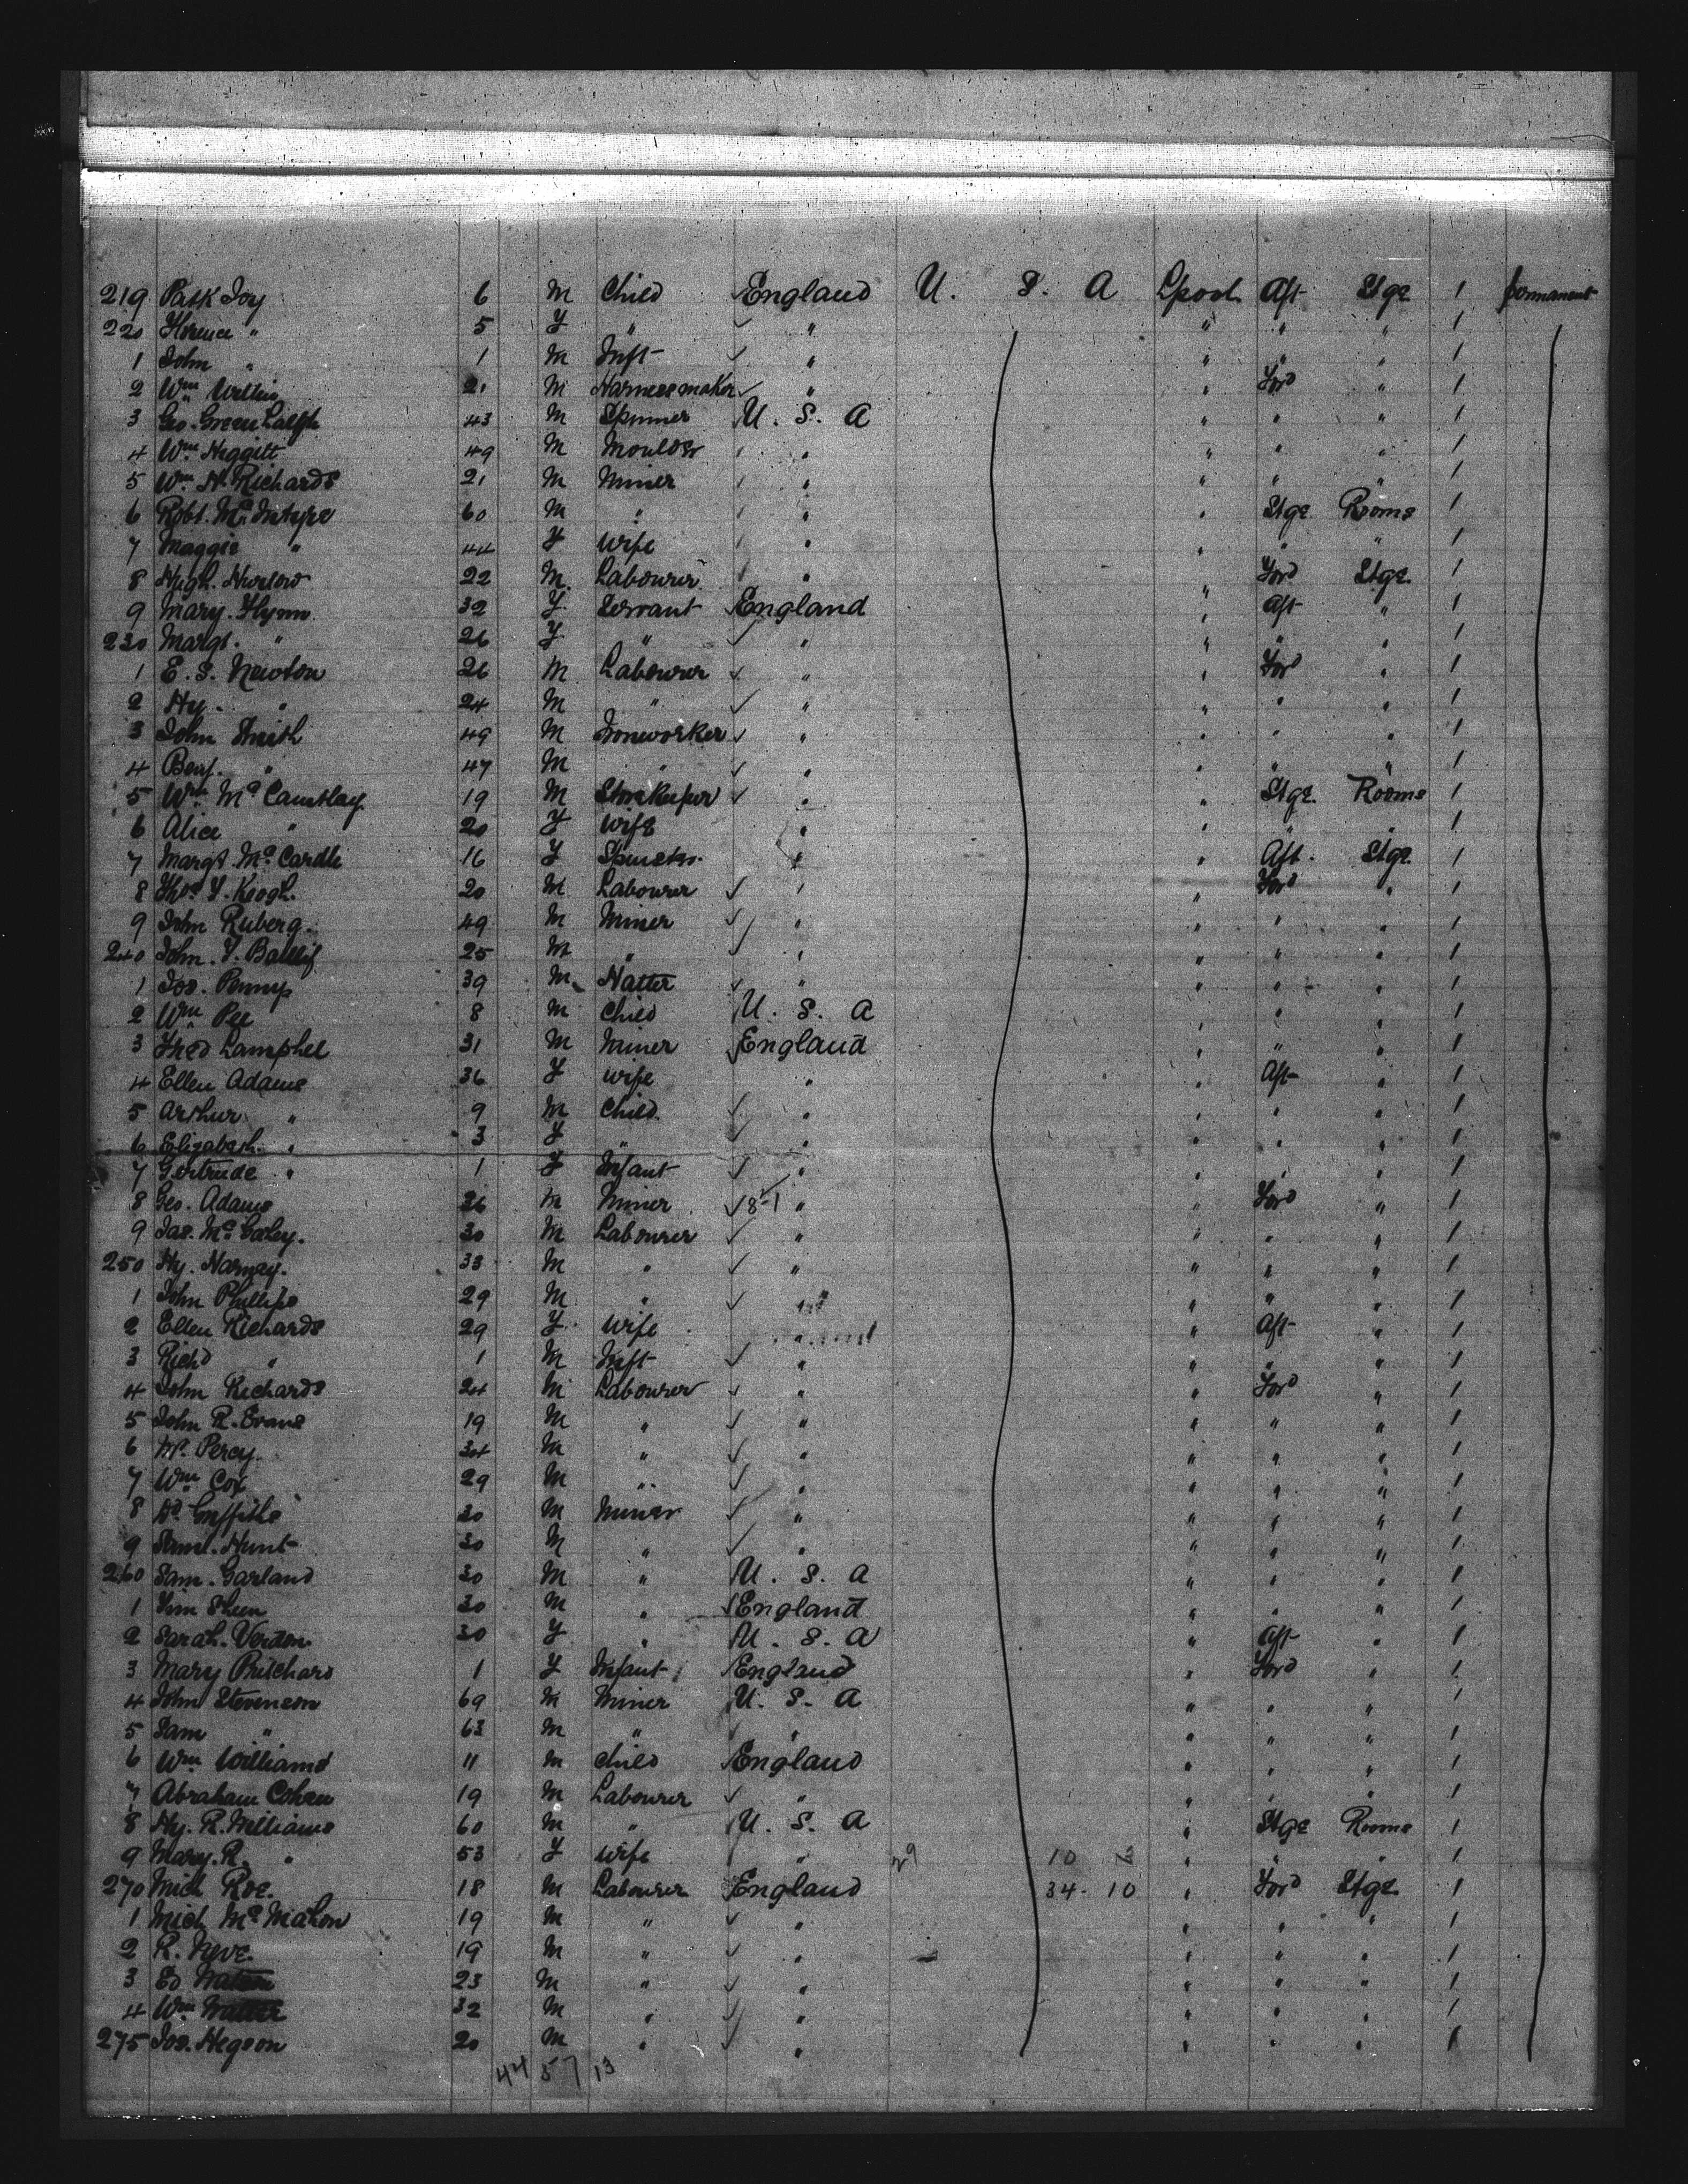 219 Patk Joy 6 M Child England U. S. A Lpool Aft Stge 1 permanent
220 Florence " 5 F " " " " " 1
1 John " 1 M Inft " " " " 1
2 Wm 21 M Harness maker " " Ford " 1
3 Geo. Green 43 M Spinner U. S. A " " " 1
4 Wm Heggitt 49 M Moulder " " " " 1
5 Wm H. Richards 21 M Miner " " " " 1
6 Robt. McIntyre 60 M " " " Stge Rooms 1
7 Maggie " 44 F Wife " " " " 1
8 Hugh 22 M Labourer " " Ford Stge 1
9 Mary Flynn 32 F Servant England " Aft " 1
230 Margt. " 26 F " " " " " 1
1 E. S. Newton 26 M Labourer " " Ford " 1
2 Hy. " 24 M " " " " " 1
3 John Smith 49 M Ironworker " " " " 1
4 Benj. " 47 M " " " " " 1
5 Wm 19 M Storekeeper " " Stge Rooms 1
6 Alice " 20 F Wife " " " " 1
7 Margt McCardle 16 F Spinster " " Aft Stge 1
8 Thos F. Keogh 20 M Labourer " " Ford " 1
9 John Ruberg 49 M Miner " " " " 1
240 John F. 25 M " " " " " 1
1 Jos. 39 M Hatter " " " " 1
2 Wm Pee 8 M Child U. S. A " " " 1
3 Fred Lamphel 31 M Miner England " " " 1
4 Ellen Adams 36 F Wife " " Aft " 1
5 Arthur " 9 M Child " " " " 1
6 Elizabeth " 3 F " " " " " 1
7 Gertrude " 1 F Infant " " " " 1
8 Geo. Adams 36 M Miner 8-1 " " Ford " 1
9 Jas. 30 M Labourer " " " " 1
250 Hy. 33 M " " " " " 1
1 John Phillips 29 M " " " " " 1
2 Ellen Richards 29 F Wife " " Aft " 1
3 Richd " 1 M Inft " " " " 1
4 John Richards 24 M Labourer " " Ford " 1
5 John R. Evans 19 M " " " " " 1
6 Percy 34 M " " " " " 1
7 Wm Cox 29 M " " " " " 1
8 Griffiths 30 M Miner " " " " 1
9 Saml. Hunt 30 M " " " " " 1
260 Sam. Garland 30 M " U. S. A " " " 1
1 Sheen 30 M " England " " " 1
2 Sarah Verdon 30 F " U. S. A " Aft " 1
3 Mary Pritchard 1 F Infant England " Ford " 1
4 John Stevenson 69 M Miner U. S. A " " " 1
5 Sam " 63 M " " " " " 1
6 Wm Williams 11 M Child England " " " 1
7 Abraham Cohen 19 M Labourer " " " " 1
8 Hy. R. Williams 60 M " U. S. A " Stge Rooms 1
9 Mary. R. " 53 F Wife " 10 " " " 1
270 Mich Roe. 18 M Labourer England 34-10 " Ford Stge 1
1 Mich McMahon 19 M " " " " " 1
2 R. Neve. 19 M " " " " " 1
3 Ed 23 M " " " " " 1
4 Wm 32 M " " " " " 1
275 Jos. Hegson 20 M " " " " " 1
44 57 13